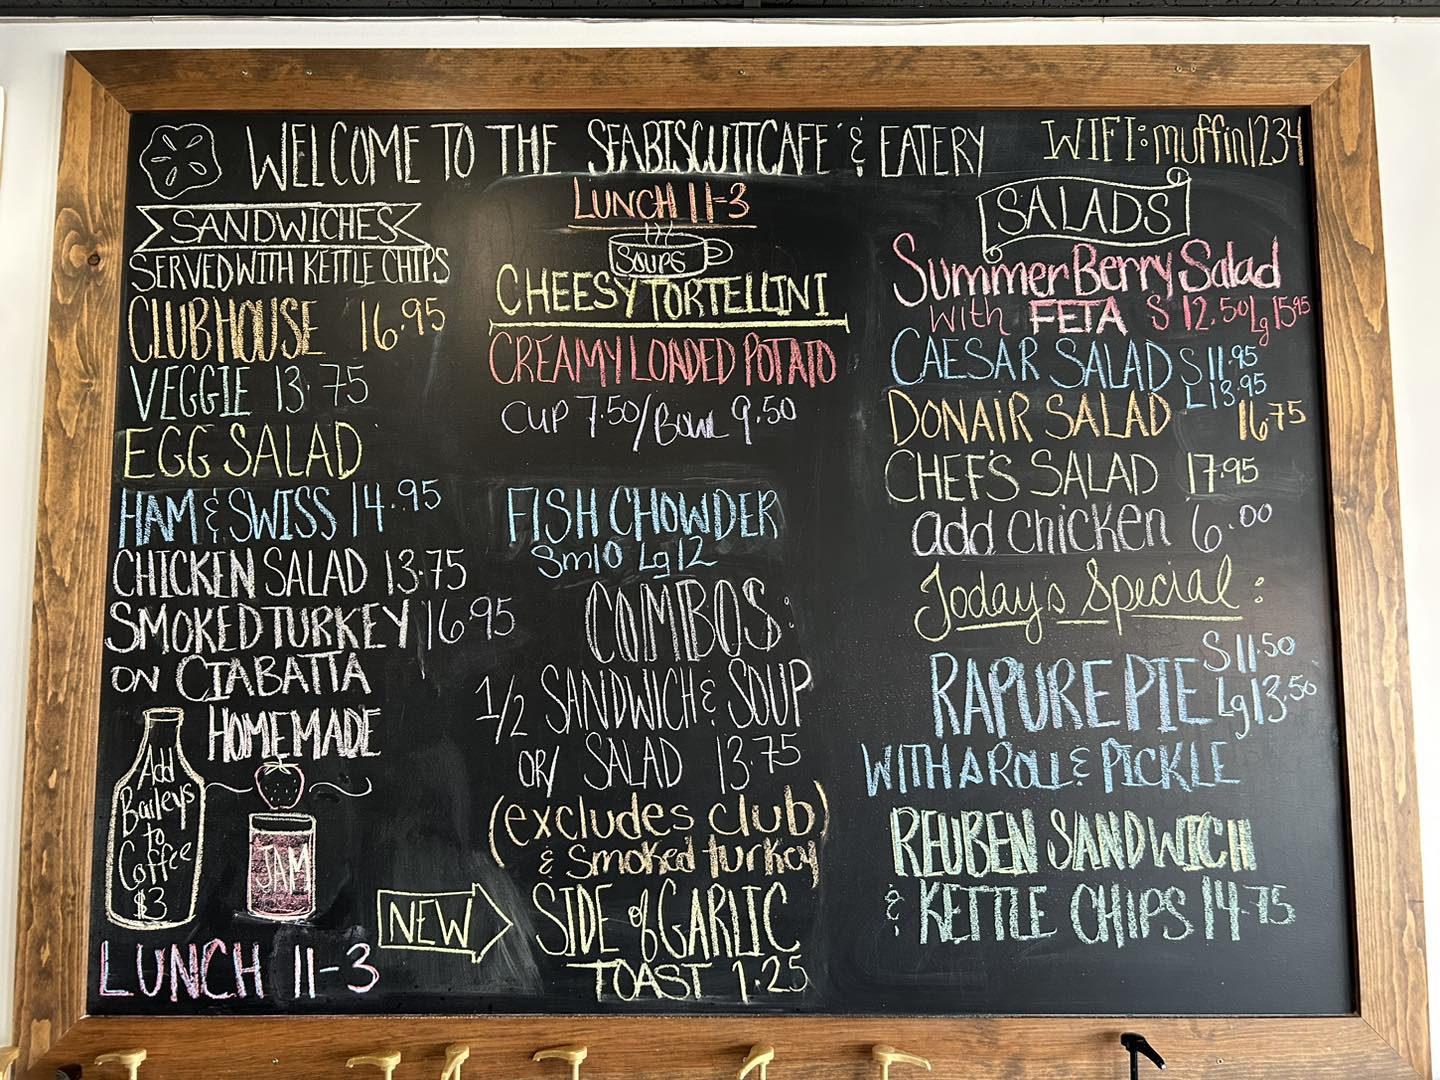 WELCOME TO THE SEABISCUITCAFE & EATERY
WIFI: muffin1234
SANDWICHES
SERVED WITH KETTLE CHIPS
CLUBHOUSE 16.95
VEGGIE 13.75
EGG SALAD
HAM & SWISS 14.95
CHICKEN SALAD 13.75
SMOKED TURKEY 16.95
ON CIABATTA
HOMEMADE
JAM
Add
Baileys
to
Coffee
$3
LUNCH 11-3
LUNCH 11-3
SOUPS
CHEESY TORTELLINI
CREAMY LOADED POTATO
CUP 7.50/Bowl 9.50
FISH CHOWDER
Sm10 Lg12
COMBOS:
1/2 SANDWICH & SOUP
OR/ SALAD 13.75
(excludes club)
& Smoked turkey
NEW
SIDE of GARLIC
TOAST 1.25
SALADS
Summer Berry Salad
with FETA S 12.50 Lg 15.95
CAESAR SALAD S 11.95
L 13.95
DONAIR SALAD 16.75
CHEF'S SALAD 17.95
add chicken 6.00
Today's Special:
RAPURE PIE S 11.50
Lg 13.50
WITH A ROLL & PICKLE
REUBEN SANDWICH
& KETTLE CHIPS 14.75